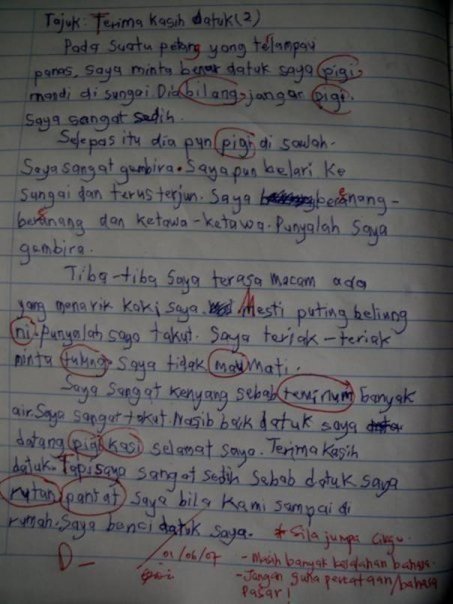 Tajuk: Terima kasih datuk (2)
Pada suatu petang yang telampau
panas, saya minta datuk saya pigi
mandi di sungai. Dia bilang, jangan pigi.
Saya sangat sedih.
Selepas itu dia pun pigi di sawah.
Saya sangat gembira. Saya pun belari ke
sungai dan terus terjun. Saya beranang-
beranang dan ketawa-ketawa. Punyalah saya
gembira.
Tiba-tiba saya terasa macam ada
yang menarik kaki saya. Mesti puting beliung
ni. Punyalah saya takut. Saya teriak-teriak
minta tulung. Saya tidak mau mati.
Saya sangat kenyang sebab teminum banyak
air. Saya sangat takut. Nasib baik datuk saya
datang pigi kasi selamat saya. Terima kasih
datuk. Tapi saya sangat sedih sebab datuk saya
rutan pantat saya bila kami sampai di
rumah. Saya benci datuk saya. * Sila jumpa cikgu.
D- 01/06/07 - Masih banyak kesalahan bahasa.
- Jangan guna perkataan/bahasa
pasar!